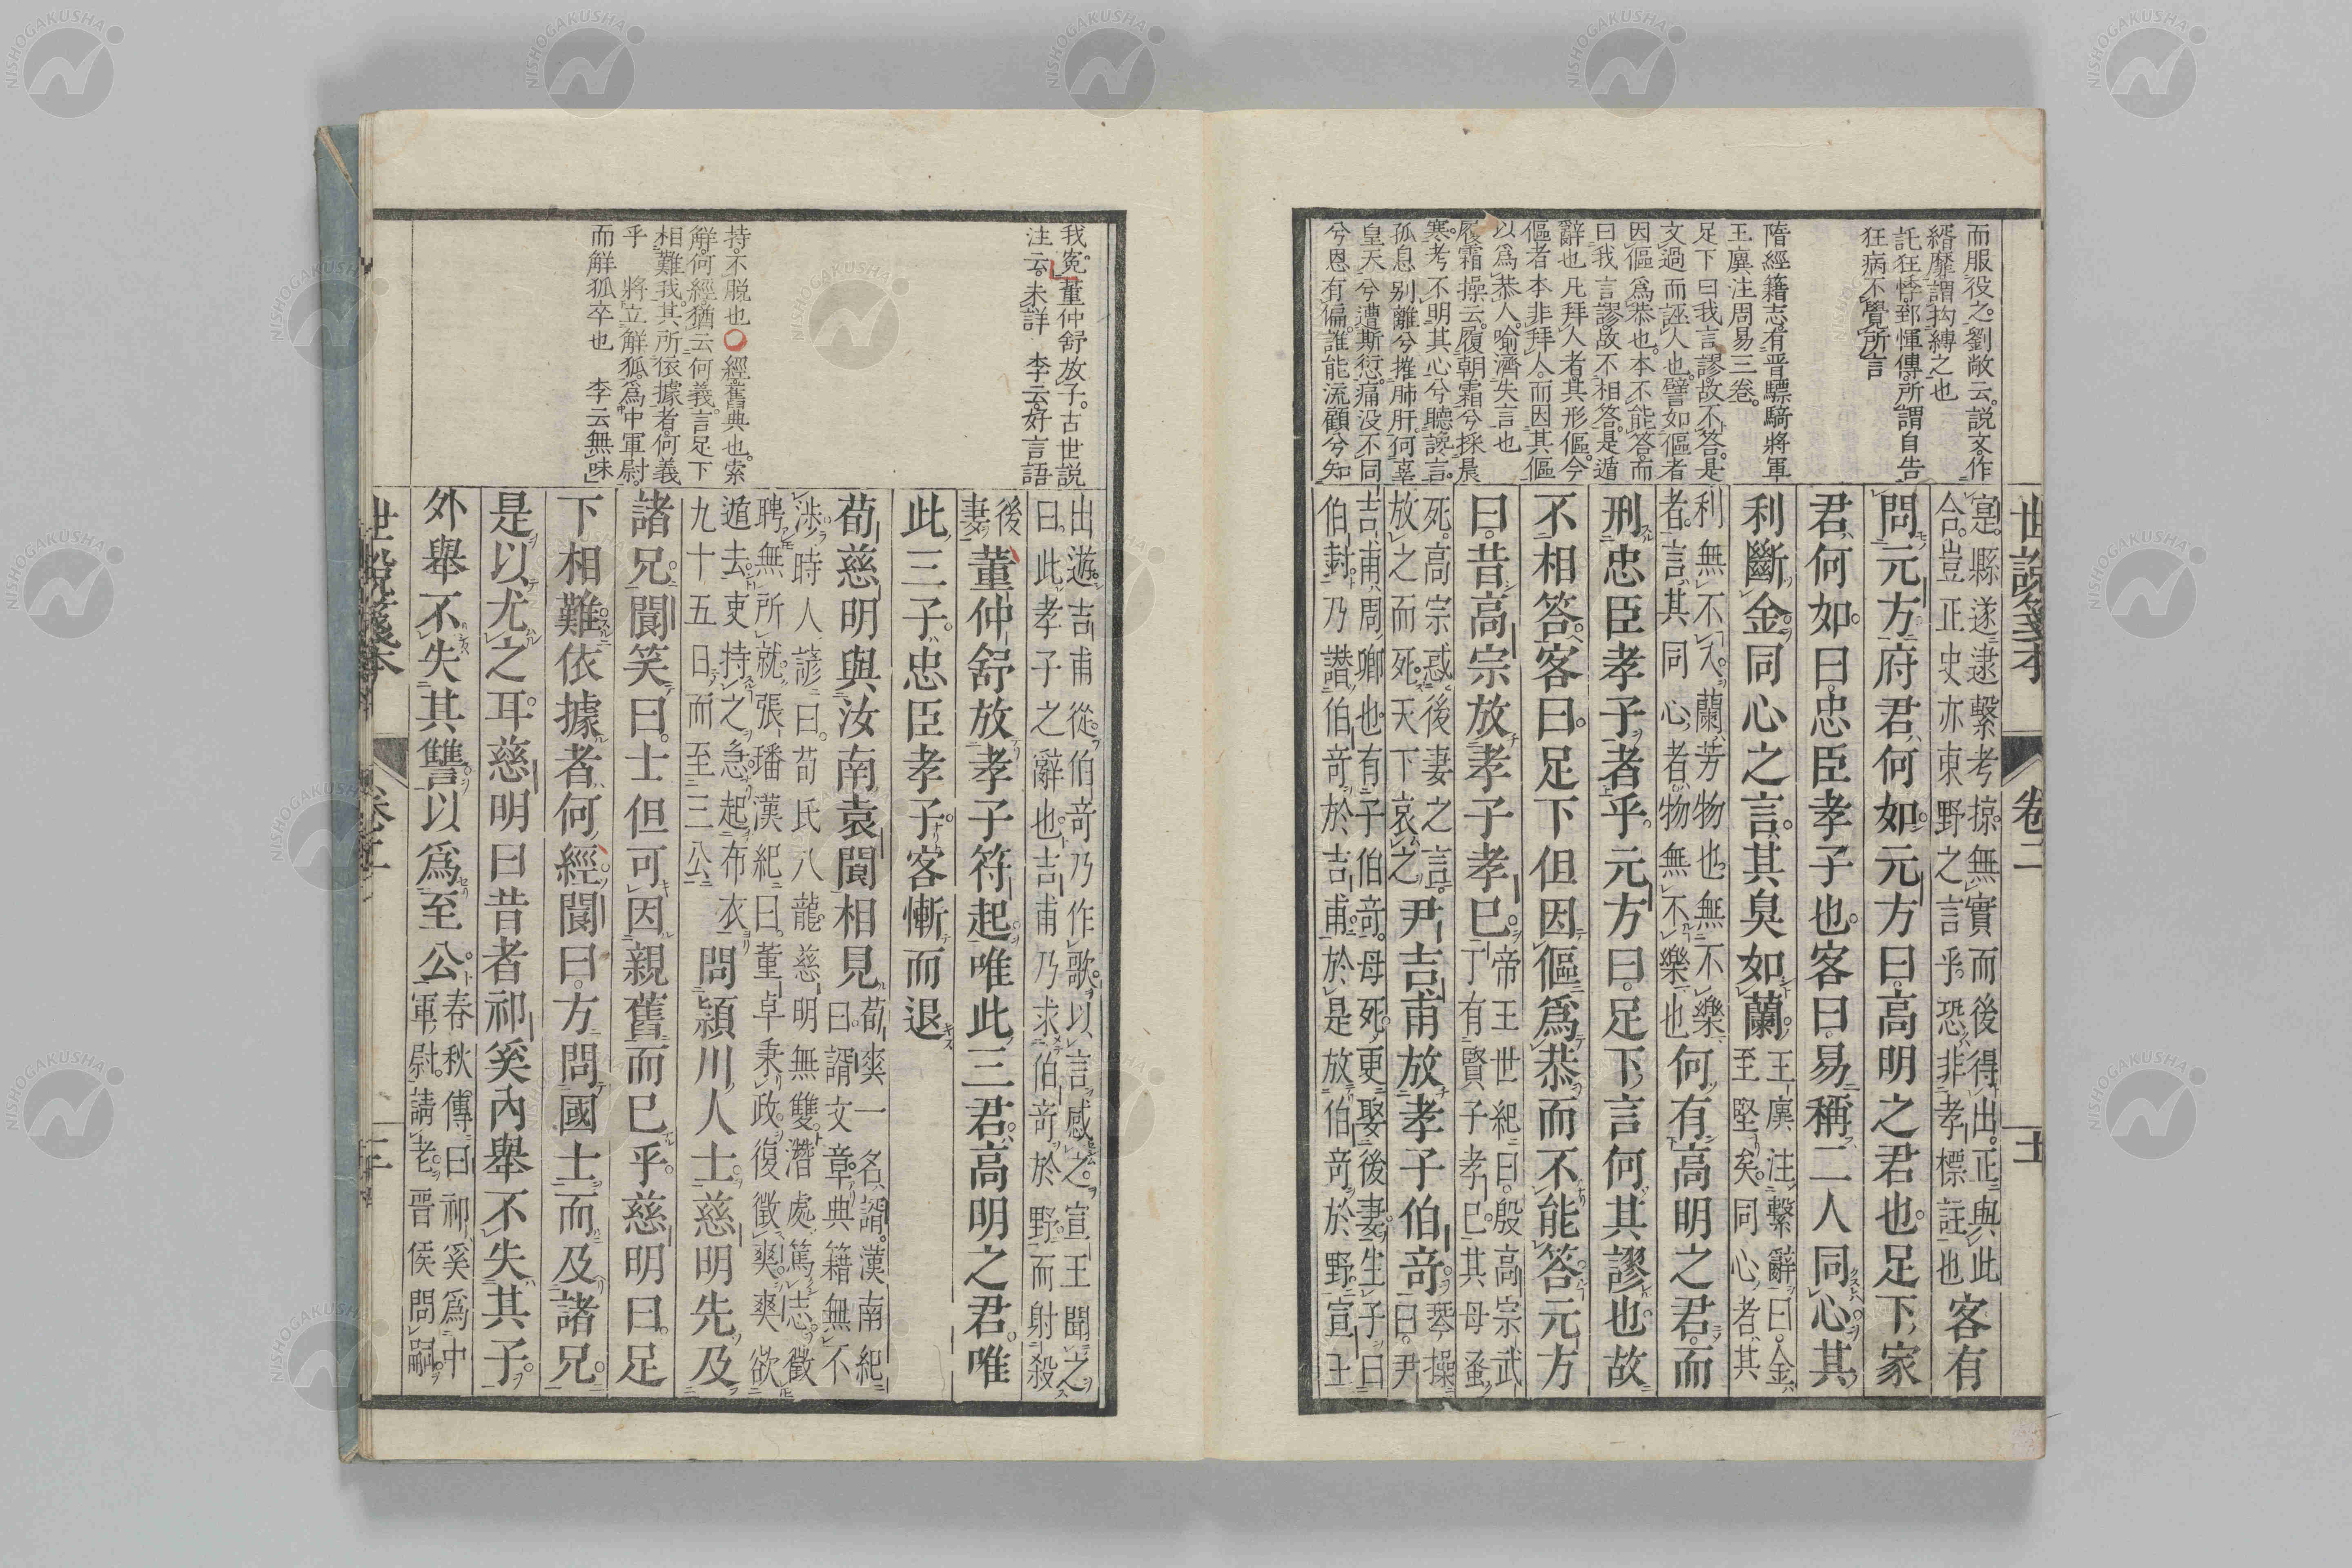 而服役之。劉敞云。説文作
縃靡謂拘縛之也
託狂悖郅惲傳所謂自告
狂病不覺所言
隋經籍志有晋驃騎將軍
王廙注周易三卷。
足下曰我言謬故不答。是
文過而誣人也。譬如傴者
因傴爲恭也。本不能答。而
曰我言謬故不相答。是遁
辭也凡拜人者。其形傴。今
傴者本非拜人。而因其傴
以爲恭人。喩濟失言也
履霜操云。履朝霜兮採晨
寒。考不明其心兮聽讒言。
孤息别離兮摧肺肝。何辜
皇天兮遭斯愆。痛没不同
兮恩有偏。誰能流顧兮知
世説箋本 卷二 十一
寔。縣遂逮繫考掠。無實而後得出。正與此
合。豈正史亦東野之言乎。恐非孝標註也 客有
問元方府君何如元方曰。高明之君也。足下家
君何如。曰。忠臣孝子也。客曰。易稱二人同心其
利斷金。同心之言。其臭如蘭。
王廙注繫辭曰。金
至堅矣。同心者。其
利無不入。蘭芳物也。無不樂
者。言其同心者。物無不樂也
何有高明之君。而
刑忠臣孝子者乎。元方曰。足下言何其謬也。故
不相答。客曰。足下但因傴爲恭。而不能答。元方
曰。昔高宗放孝子孝己。
帝王世紀曰。殷高宗武
丁有賢子孝己。其母蚤
死。高宗惑後妻之言。
放之而死。天下哀之
尹吉甫放孝子伯奇。
琴操
曰。尹
吉甫周卿也。有子伯奇。母死。更娶後妻。生子曰
伯封。乃譖伯奇於吉甫。於是放伯奇於野。宣王
我寃。董仲舒放子。古世説
注云。未詳 李云好言語
持不脱也 經舊典也。索
解。何經猶云何義。言足下
相難我其所依據者何義
乎 將立解狐。爲中軍尉。
而解狐卒也 李云無味
出遊。吉甫從。伯奇乃作歌。以言感之。宣王聞之
曰。此孝子之辭也。吉甫乃求伯奇於野。而射殺
後
妻
董仲舒放孝子符起。唯此三君。高明之君。唯
此三子。忠臣孝子。客慚而退
荀慈明與汝南袁閬相見
荀爽一名諝。漢南紀
曰。諝文章典籍無不
渉。時人諺曰。荀氏八龍。慈明無雙。潛處篤志。徵
聘無所就。張璠漢紀曰。董卓秉政。復徵爽。爽欲
遁去。吏持之急。起布衣
九十五日而至三公
問潁川人士。慈明先及
諸兄。閬笑曰。士但可因親舊而已乎。慈明曰。足
下相難。依據者何經。閬曰。方問國士。而及諸兄。
是以尤之耳。慈明曰。昔者祁奚内舉不失其子。
外舉不失其讐。以爲至公。
春秋傳曰。祁奚爲中
軍尉。請老。晋侯問嗣。
世説箋本 卷二
NISHOGAKUSHA